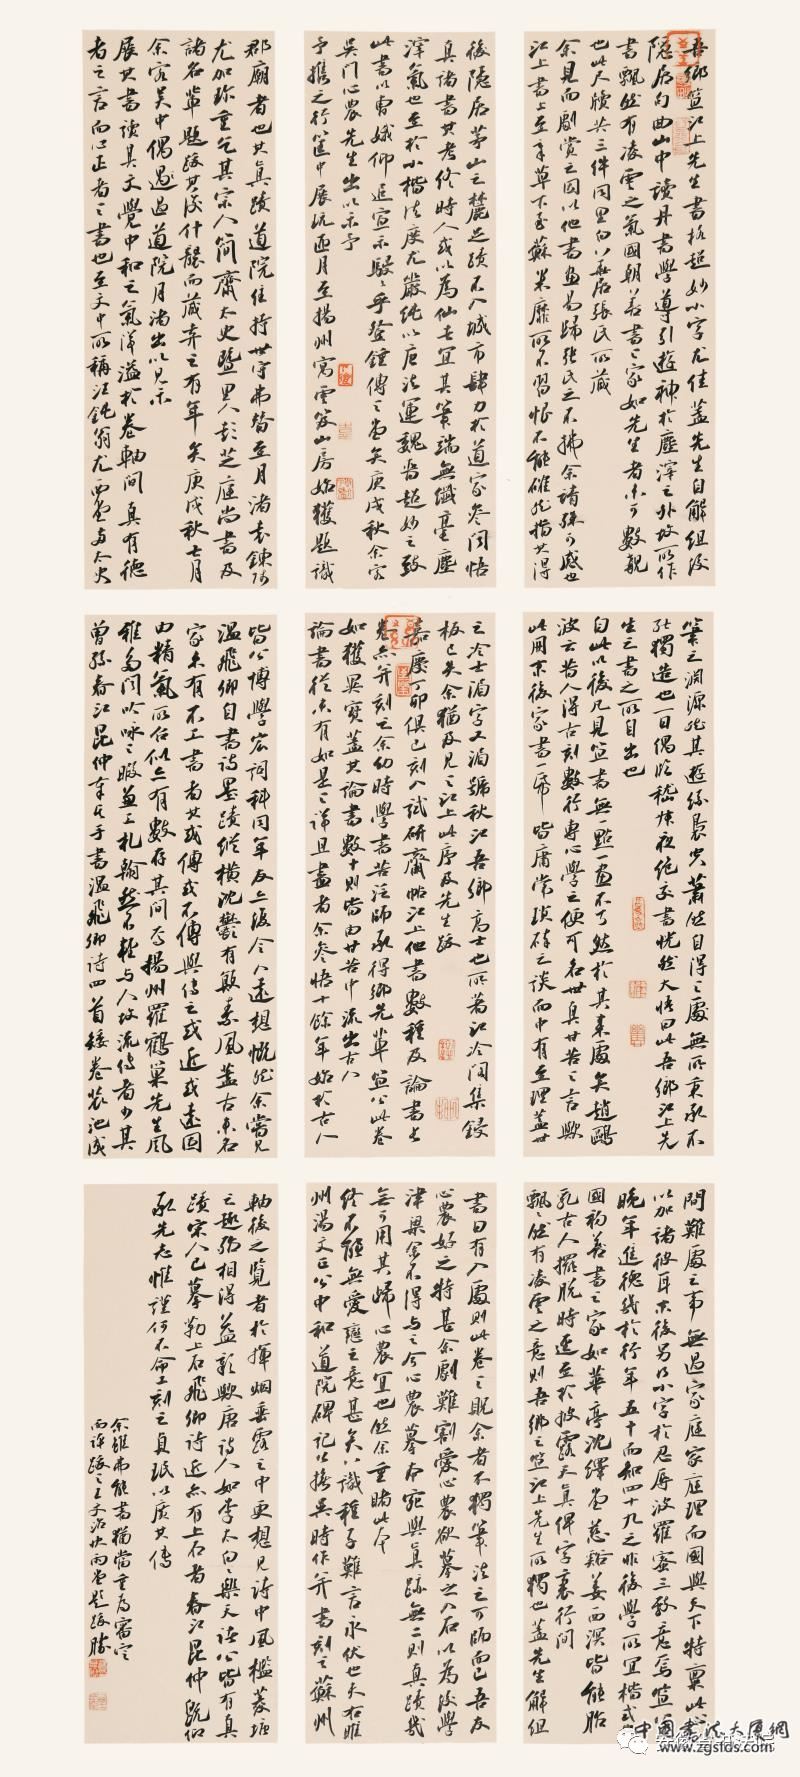 吾鄉笪江上先生書格超妙小字尤佳蓋先生自解組後
隱居句曲山中讀丹書學導引遊神於塵滓之外故所作
書飄然有凌雲之氣國朝善書之家如先生者未可數覯
也此尺牘共三件同里白八華居張氏所藏
余見而劇賞之因以他書畫易歸張氏亦不拂余請殊可感也
江上書上至章草下至蘇米靡所不習恨不能確然指其得
後隱居茅山之麓足跡不入城市肆力於道家參同悟
真諸書其考終時人或以為仙去宜其筆端無纖毫塵
滓氣也至於小楷法度尤嚴純以唐法運魏晉超妙之致
此書以曹娥仰追宣示駸駸乎登鍾傅之堂矣庚戌秋余客
吳門心農先生出以示予
予攜之行篋中展玩匝月至揚州寓雲笈山房始獲題識
郡廟者也其真蹟道院住持世守弗替至月渚袁鍊師
尤加珍重乞其宗人簡齋太史暨里人彭芝庭尚書及
諸名輩題跋其後什襲而藏弆之有年矣庚戌秋七月
余客吳中偶過道院月渚出以見示
展其書讀其文覺中和之氣洋溢於卷軸間真有德
者之言而心正者之書也至文中所稱汪鈍翁尤西堂兩太史
筆之淵源然其遊絲裊空蕭然自得之處無所秉承不
能獨造也一日偶臨嵇叔夜絕交書恍然大悟曰此吾鄉江上先
生之書之所自出也
自此以後凡見笪書無一點一畫不了然於其來處矣趙鷗
波云昔人得古刻數行專心學之便可名世真甘苦之言歟
此冊京後家書一帋皆庸常瑣碎之談而中有至理蓋世
之冷士湄字又湄號秋江吾鄉高士也所著江泠閣集鋟
板已失余猶及見之江上此序及先生跋
嘉慶丁卯俱已刻入試研齋帖江上他書數種及論書長
卷亦并刻之余幼時學書苦泛師承得鄉先輩笪公此卷
如獲異寶蓋其論書數十則皆由甘苦中流出古人
論書從未有如是之詳且盡者余參悟十餘年始於古人
皆公博學宏詞科同年友上海今人遠想慨然余嘗見
溫飛卿自書詩墨蹟縱橫沈鬱有敏素風蓋古來名
家未有不工書者其或傳或不傳與傳之或近或遠固
由精氣所召似亦有數存其間焉揚州羅鶴巢先生風
雅多聞吟咏之暇兼工札翰然不輕與人故流傳者少其
曾孫春江昆仲奉其手書溫飛卿詩四首矮卷裝池成
間難處之事無過家庭家庭理而國與天下特稟此
以加諸彼耳末後另乃小字於忍辱波羅蜜三致意焉笪公
晚年進德幾於行年五十而知四十九之非後學所宜楷式也
國初善書之家如華亭沈繹堂慈谿姜西溟皆能胎
乳古人擺脫時逕至於披露天真俾字裏行間
飄飄然有凌雲之意則吾鄉之笪江上先生所獨也蓋先生解組
書曰有入處則此卷之貺余者不獨筆法之可師而已吾友
心農好之特甚余劇難割愛心農欲摹之入石以為後學
津梁余不得與之今心農摹本宛與真跡無二則真蹟幾
無可用其歸心農宜也然余重睹此本
終不能無愛瘧之意甚矣八識種子難言永伏也夫右睢
州湯文正公中和道院碑記公撫吳時作并書刻之蘇州
軸後之覽者於揮烟垂露之中更想見詩中風檻菱塘
之趣殆相得益彰歟唐詩人如李太白白樂天諸公皆有真
蹟宋人已摹勒上石飛卿詩近亦有上石者春江昆仲既仰
承先志惟謹何不命工刻之貞珉以廣其傳
余雖弗能書猶當重為審定
而詳跋之王文治快雨堂題跋
中國書法大展網
www.zgsfds.com